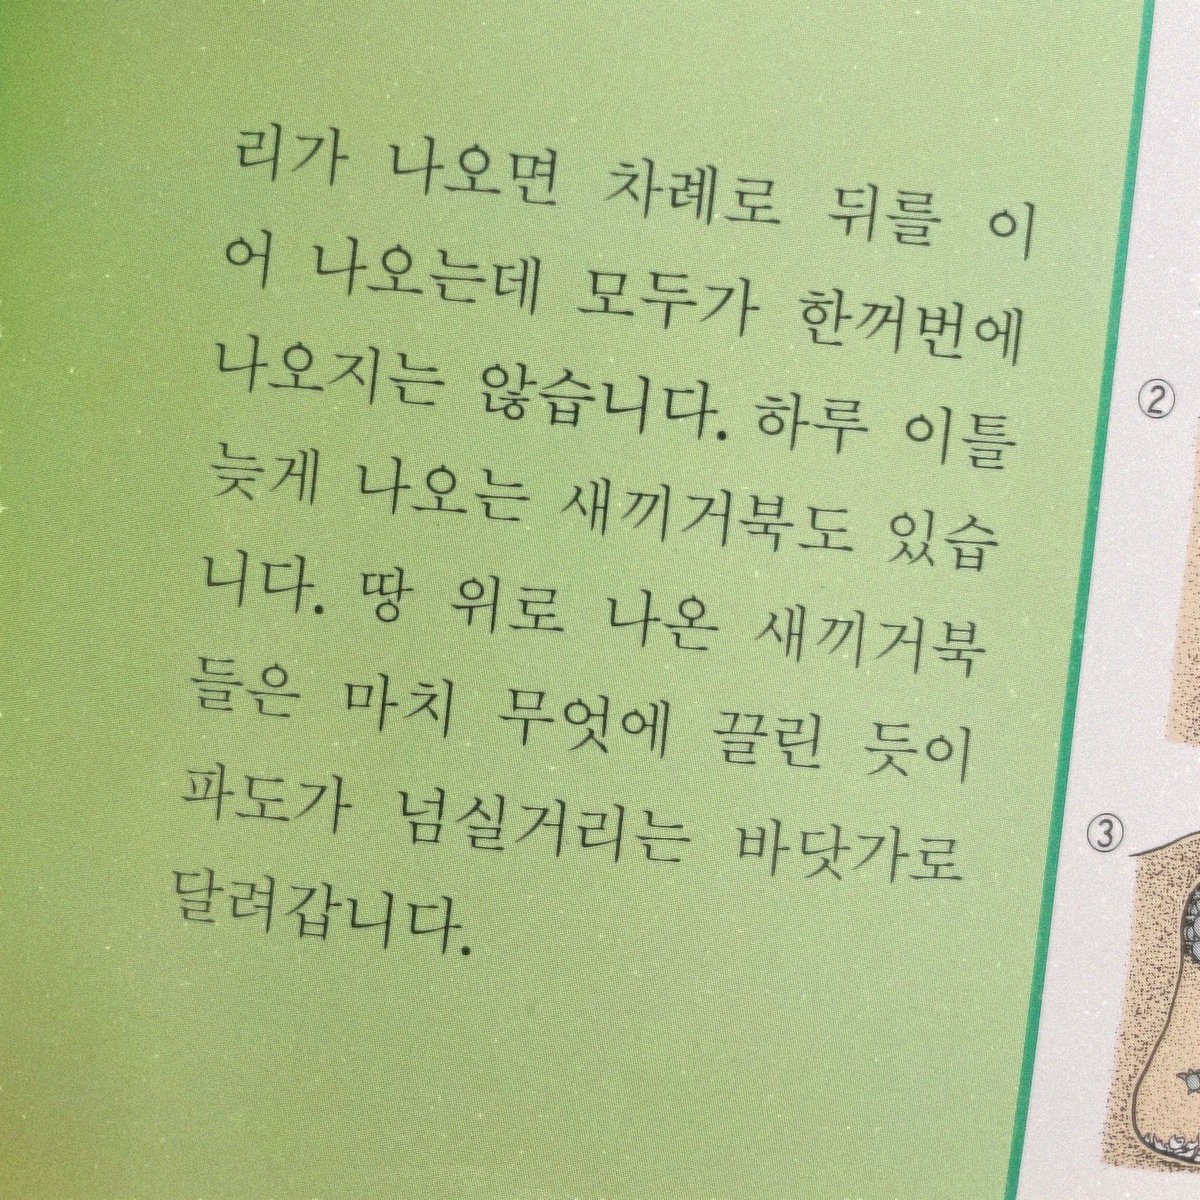 리가 나오면 차례로 뒤를 이
어 나오는데 모두가 한꺼번에
나오지는 않습니다. 하루 이틀
늦게 나오는 새끼거북도 있습
니다. 땅 위로 나온 새끼거북
들은 마치 무엇에 끌린 듯이
파도가 넘실거리는 바닷가로
달려갑니다.
②
③